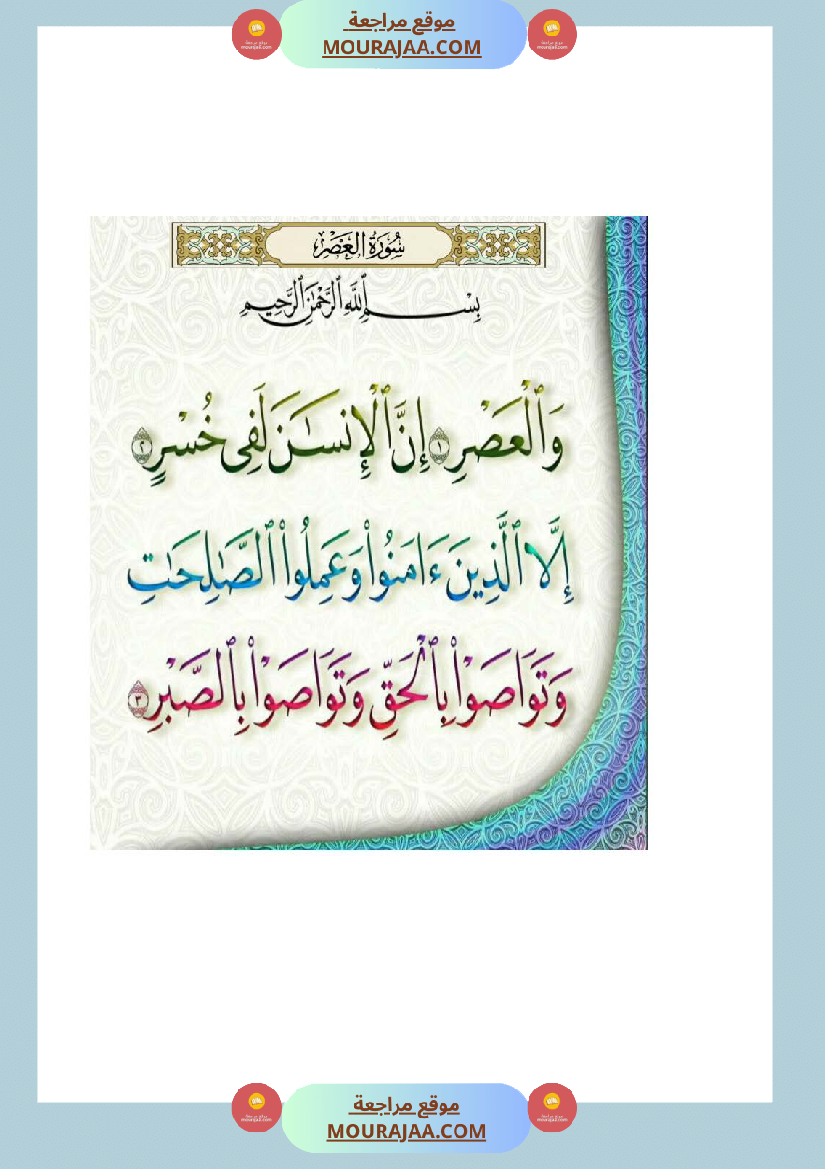 موقع مراجعة
MOURAJAA.COM
سُورَةُ العَصْرِ
بِسْمِ ٱللَّهِ ٱلرَّحْمَٰنِ ٱلرَّحِيمِ
وَٱلْعَصْرِ ١ إِنَّ ٱلْإِنسَٰنَ لَفِى خُسْرٍ ٢
إِلَّا ٱلَّذِينَ ءَامَنُوا۟ وَعَمِلُوا۟ ٱلصَّٰلِحَٰتِ
وَتَوَاصَوْا۟ بِٱلْحَقِّ وَتَوَاصَوْا۟ بِٱلصَّبْرِ ٣
موقع مراجعة
MOURAJAA.COM